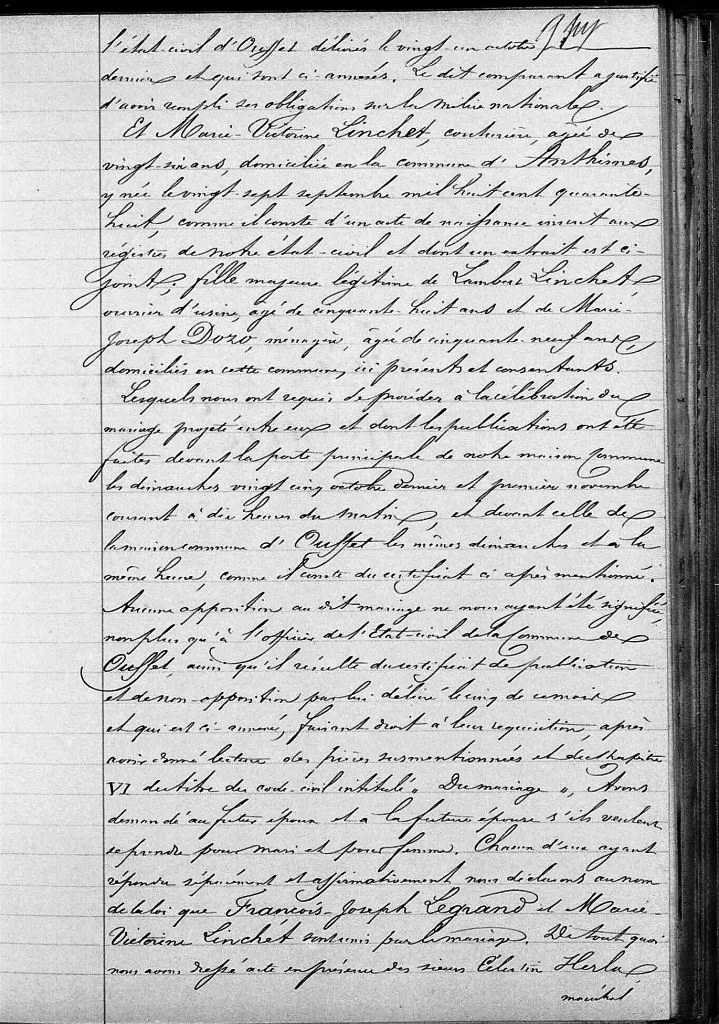 l'état-civil d'Ouffet délivrés le vingt-un octobre
dernier et qui sont ci-annexés. Le dit comparant a justifié
d'avoir rempli ses obligations sur la milice nationale.
Et Marie-Victorine Linchet, couturière, agée de
vingt-six ans, domiciliée en la commune d'Anthisnes,
y née le vingt-sept septembre mil huit cent quarante-
huit, comme il conste d'un acte de naissance inscrit aux
régistres de notre état-civil et dont un extrait est ci-
joint; fille majeure légitime de Lambert Linchet
ouvrier d'usine, agé de cinquante-huit ans et de Marie-
Joseph Dozo, ménagère, âgée de cinquante-neuf ans,
domiciliés en cette commune, ici présents et consentants.
Lesquels nous ont requis de procéder à la célébration du
mariage projeté entre eux et dont les publications ont été
faites devant la porte principale de notre maison commune
les dimanches vingt cinq octobre dernier et premier novembre
courant à dix heures du matin, et devant celle de
la maison commune d'Ouffet les mêmes dimanches et à la
même heure, comme il conste du certificat ci après mentionné.
Aucune opposition au dit mariage ne nous ayant été signifiée,
non plus qu'à l'officier de l'Etat-civil de la Commune de
Ouffet, ainsi qu'il résulte du certificat de publication
et de non-opposition par lui délivré le cinq de ce mois
et qui est ci-annexé, faisant droit à leur requisition, après
avoir donné lecture des pièces susmentionnées et du chapitre
VI du titre du code-civil intitulé " Du mariage ", Avons
demandé au futur époux et a la future épouse s'ils veulent
se prendre pour mari et pour femme. Chacun d'eux ayant
répondu séparément et affirmativement nous déclarons au nom
de la loi que François-Joseph Legrand et Marie-
Victorine Linchet sont unis par le mariage. De tout quoi
nous avons dressé acte en présence des sieurs Célestin Herla,
maréchal